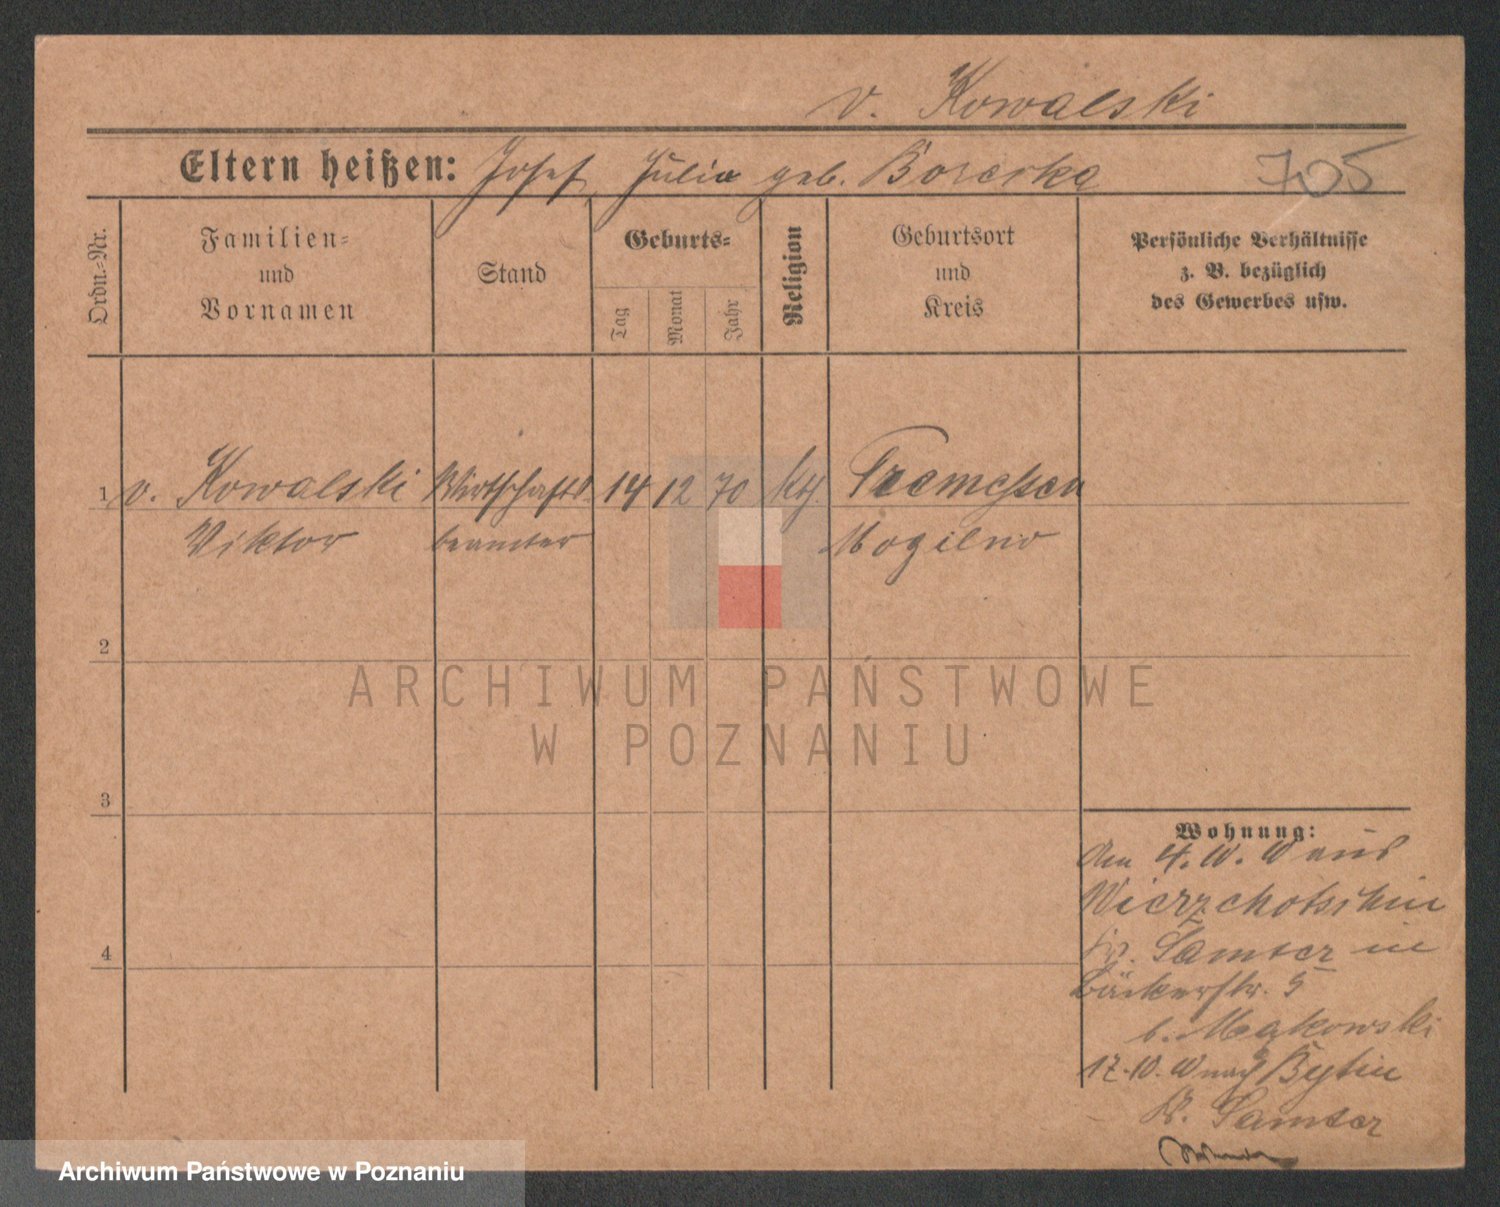 v. Kowalski
Eltern heißen: Josef, Julia geb. Borcska
705
Ordn.-Nr.
Familien-
und
Vornamen
Stand
Geburts-
Tag
Monat
Jahr
Religion
Geburtsort
und
Kreis
Persönliche Verhältnisse
z. B. bezüglich
des Gewerbes usw.
1 v. Kowalski Wirtschafts- 14 12 70 kth. Tremessen
Viktor beamter Mogilno
2
ARCHIWUM PAŃSTWOWE
W POZNANIU
3
Wohnung:
den 4. 10. 10 aus
Kr. Samter in
Bäckerstr. 5
b. Makowski
17. 10. 10 nach Bytin
Kr. Samter
4
Archiwum Państwowe w Poznaniu